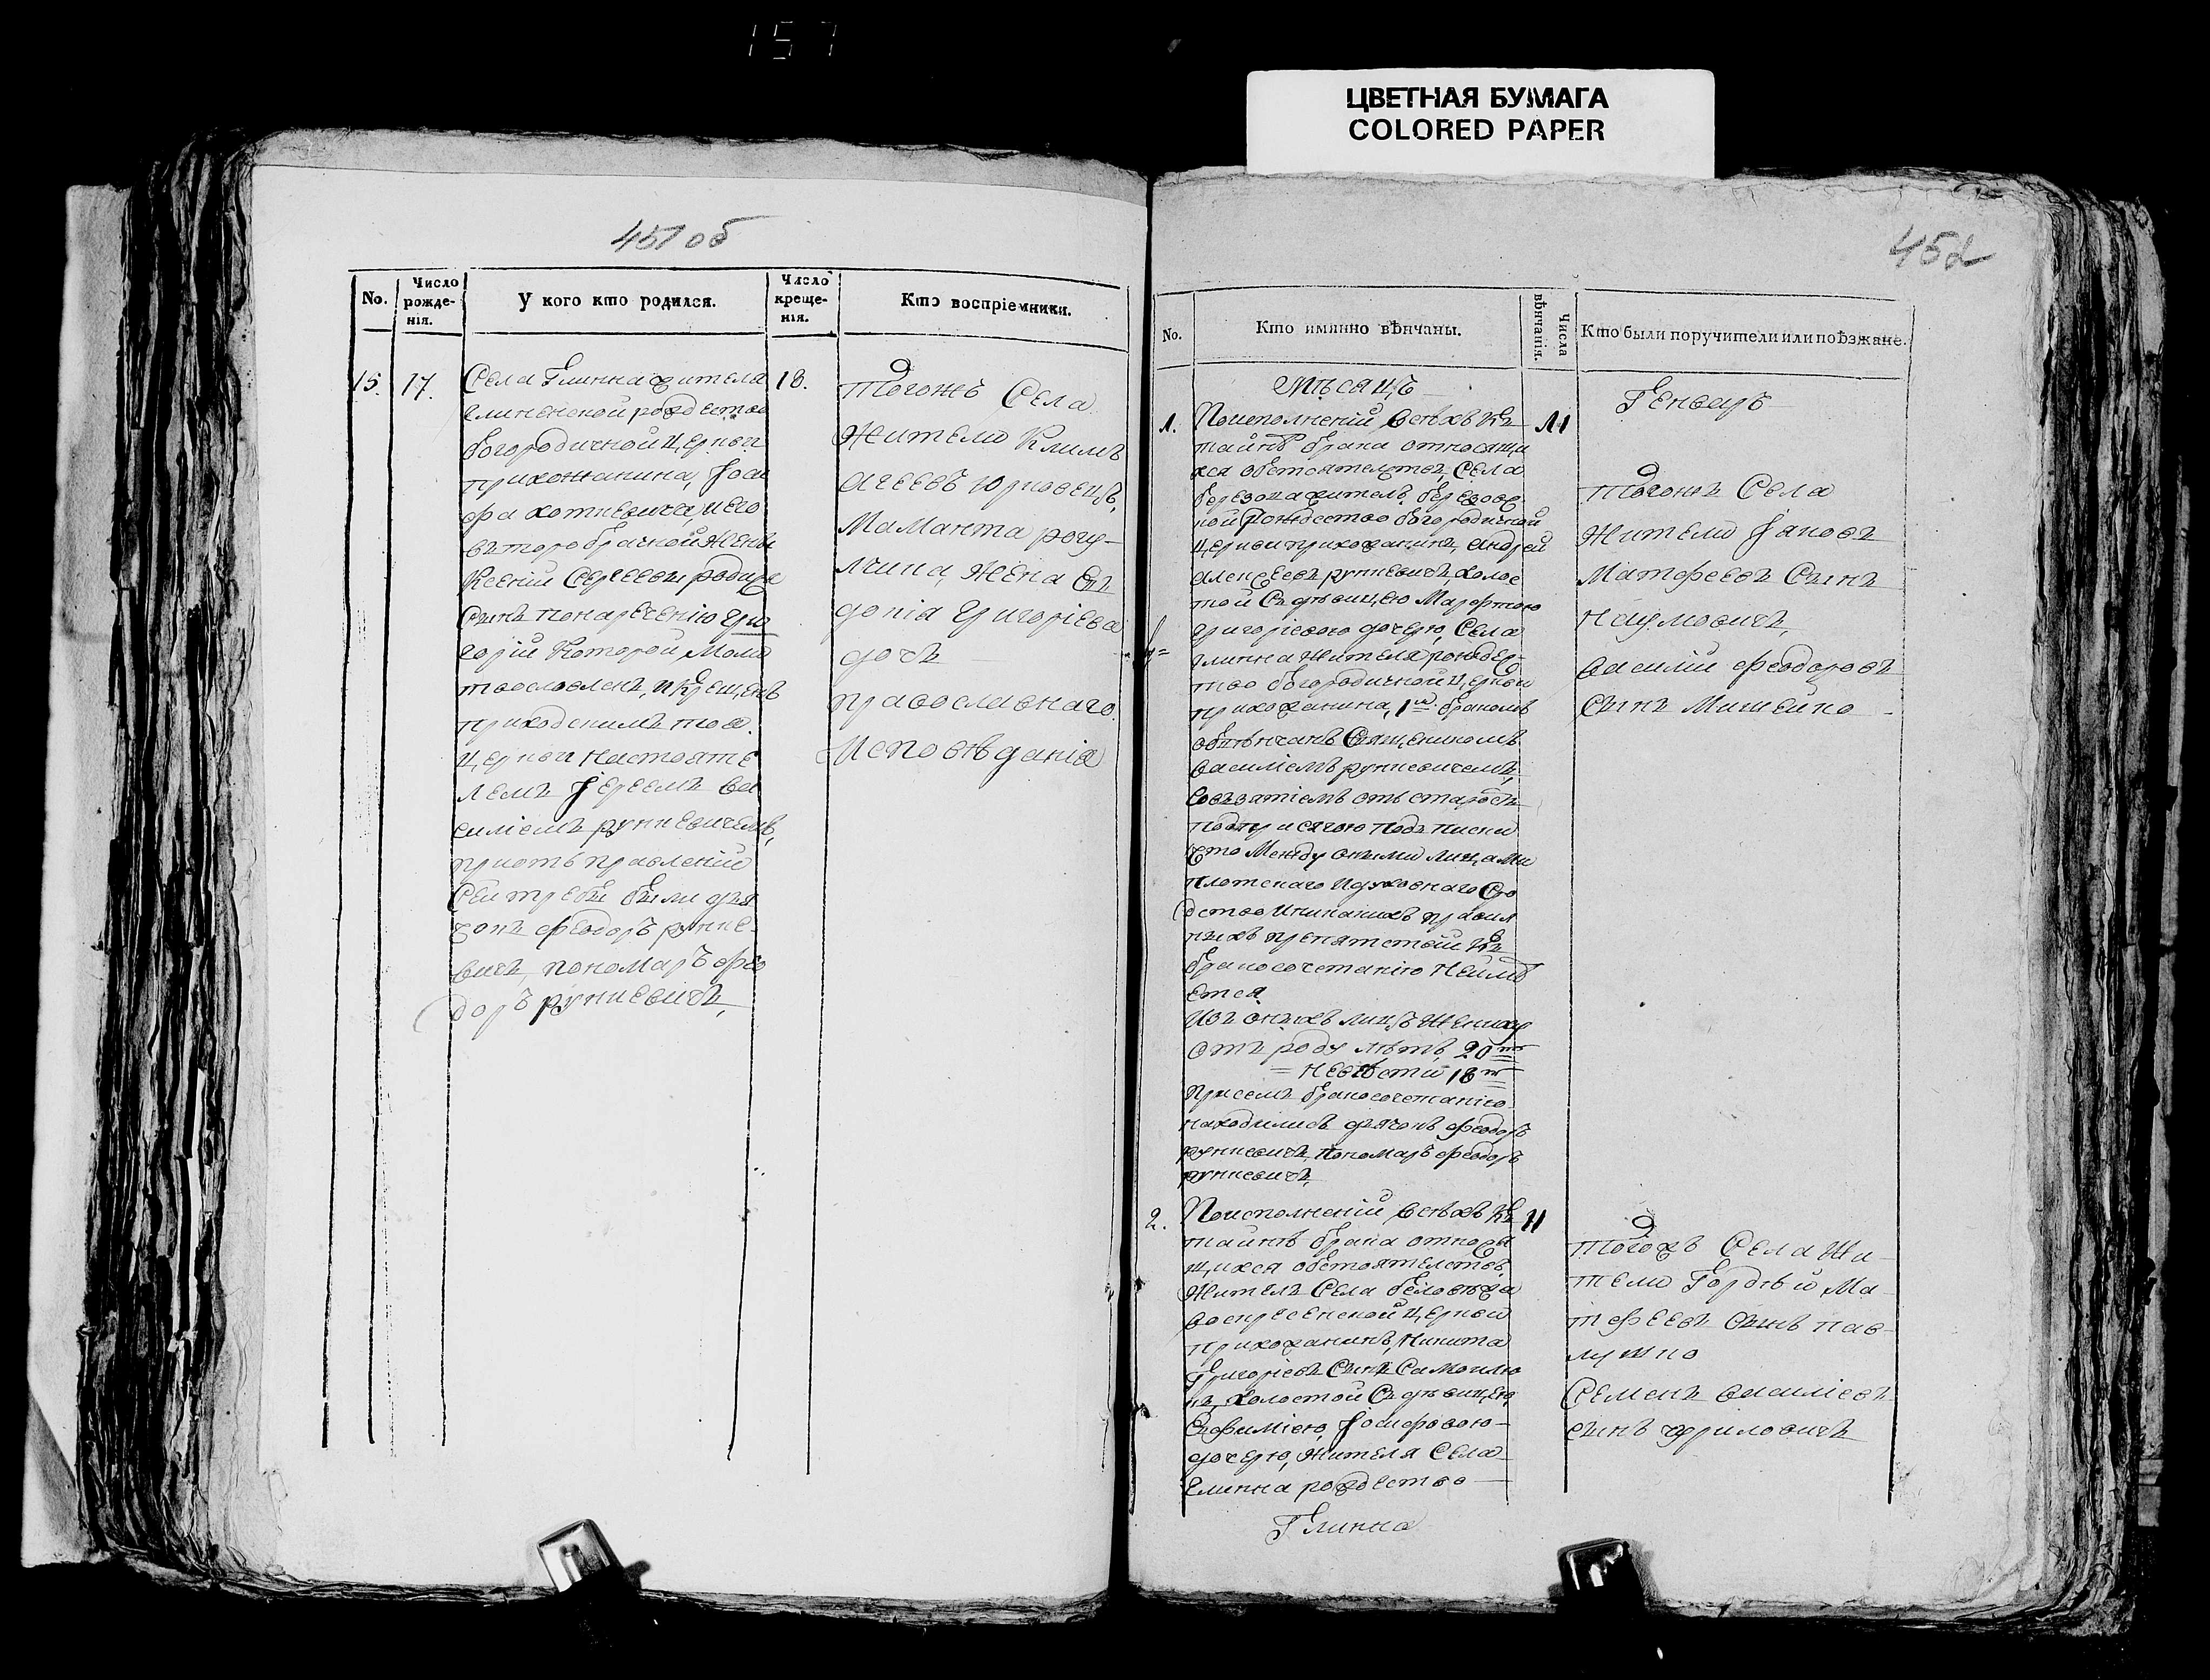 157
ЦВЕТНАЯ БУМАГА
COLORED PAPER
451 об
No.
Число рожде- нія.
У кого кто родился.
Число креще- нія.
Кто воспріемники.
15. 17. 18.
Села Глинна жителя
глиненской рождество
богородичной церкви
прихожанина, Іоси
фа хоткевича, и его
второбрачной жены
Ксеніи Сергеевы родися
Сынъ понаречению Гри
горій Которой Молит
твословленъ, и крещенъ
приходскимъ тоя
церкви настояте
лемъ Іереемъ Ва
силіемъ рункевичемъ,
приотъправленій
Сей требы были дья
чокъ феодоръ рунке-
вичъ, пономаръ фео
доръ рункевичъ,
тогожъ Села
Жители Климъ
агеевъ юрковецъ,
Маманта рогу-
лчина, жена Ев
докіа григоріева
дочъ
православнаго
Исповѣданія
452
No.
Кто имянно вѣнчаны.
Числа вѣнчанія.
Кто были поручители или поѣзжане.
Мѣсяцъ
Генварь
1. 11
Поисполненіи всѣхъ Къ
тайнѣ брака относящи
хся обстоятелствъ, Села
березока житель, березов
кой Рождество богородичной
церкви прихожанинъ, андрей
алексеевъ рункевичъ, холос
той Съ дѣвицею Марфтою
григоріевою дочерю, Села
глинна жителя рождес-
тво богородичной церкви
прихожанина, 1м бракомъ
обвѣнчанъ Священикомъ
василіемъ рункевичемъ,
Совзятіемъ отъ старостъ
подпусячою подъписки
что Между оными лицами
плотскаго и духовнаго Сро
дство и никакихъ правил
ныхъ препятствій Къ
бракосочетанію Неиме
ется
Изъ оныхъ лицъ жениху
отъ роду летъ, 20ть
невѣсти 18ть
присемъ бракосочетаніи
находились дячокъ феодоръ
рункевичъ, пономаръ феодоръ
рункевичъ,
тогожъ Села
Жители Іаковъ
Матфеевъ Сынъ
наумовичъ,
василій феодоровъ
Сынъ Мишейко
2. 11
Поисполненіи всѣхъ Къ
тайнѣ брака относя
щихся обстоятелствъ,
Житель Села беловежа
воскресенской церкви
прихожанинъ, Никита
Григоріевъ Сынъ Самойлю
къ, холостой Съ дѣвицею,
Евфиміею, Іосифовою
дочерю, жителя Села
Глинна рождество
Глинна
тогожъ Села Жи-
тели Гордѣй Ма-
тфеевъ Сынъ пав-
лушко
Семенъ василіевъ
сынъ